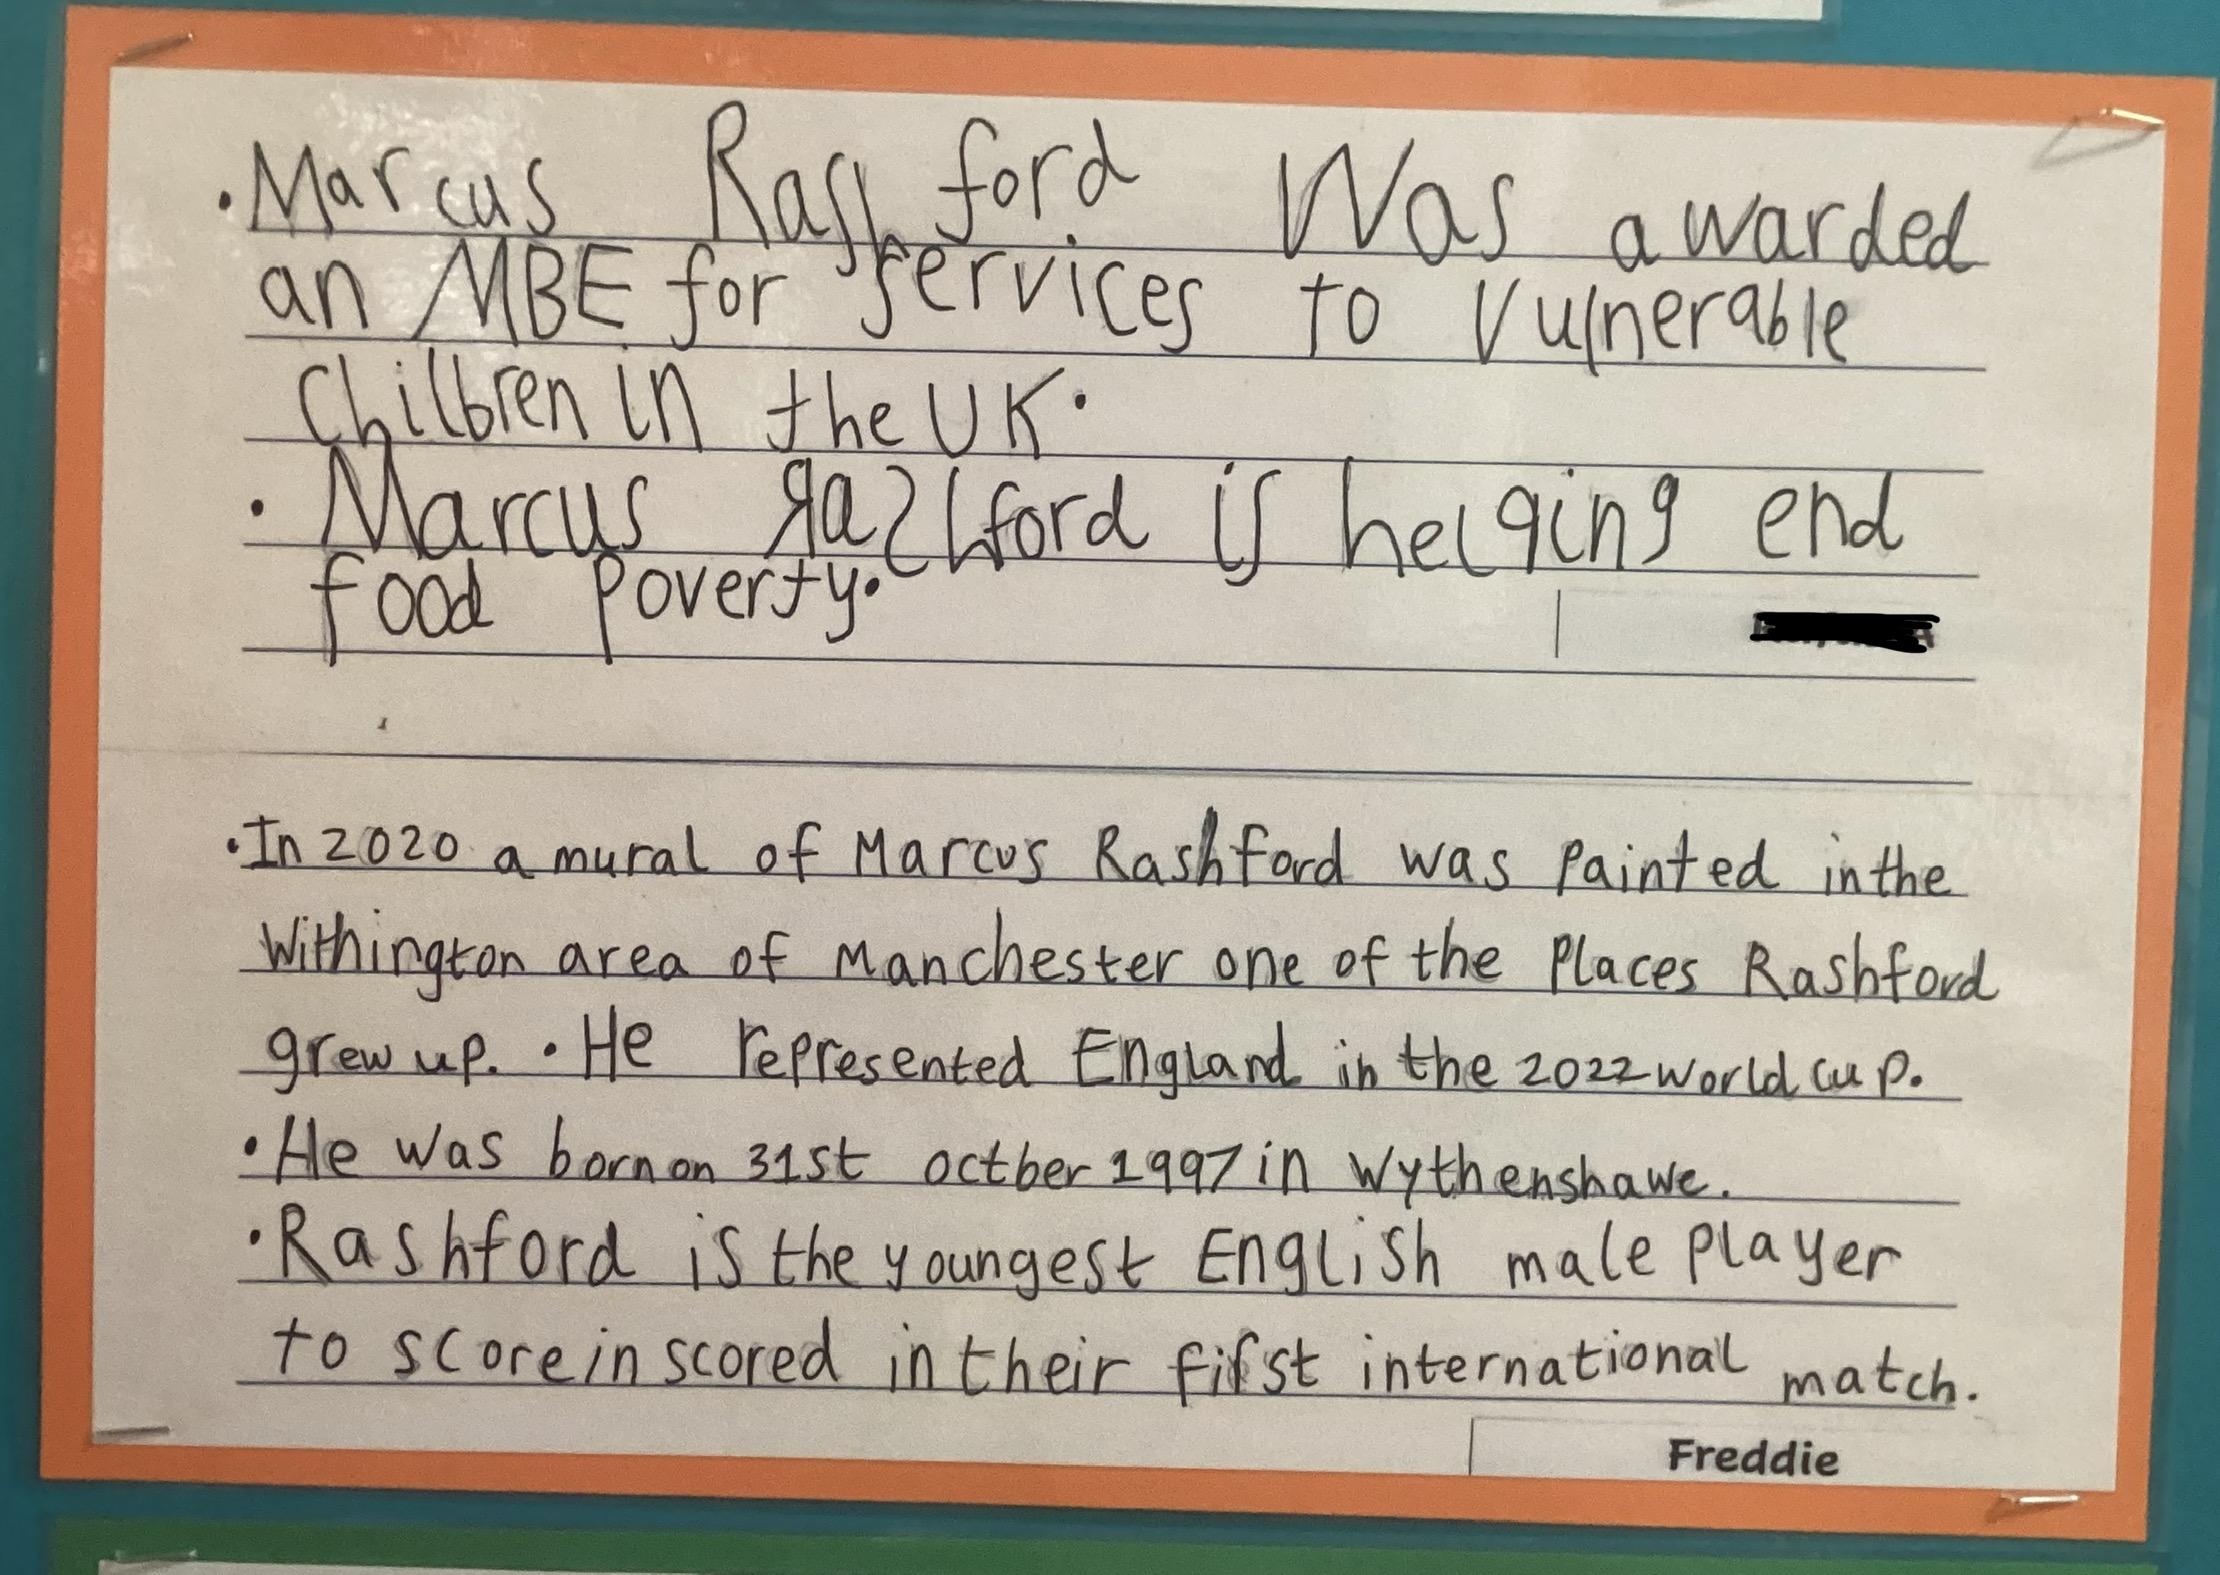 • Marcus Rashford Was awarded
an MBE for services to Vulnerable
Chilbren in the UK.
• Marcus Rashford is helqing end
food poverty.
• In 2020 a mural of Marcus Rashford was Painted in the
Withington area of Manchester one of the Places Rashford
grew up. • He represented England in the 2022 world cup.
• He was born on 31st octber 1997 in Wythenshawe.
• Rashford is the youngest English male player
to score in scored in their first international match.
Freddie